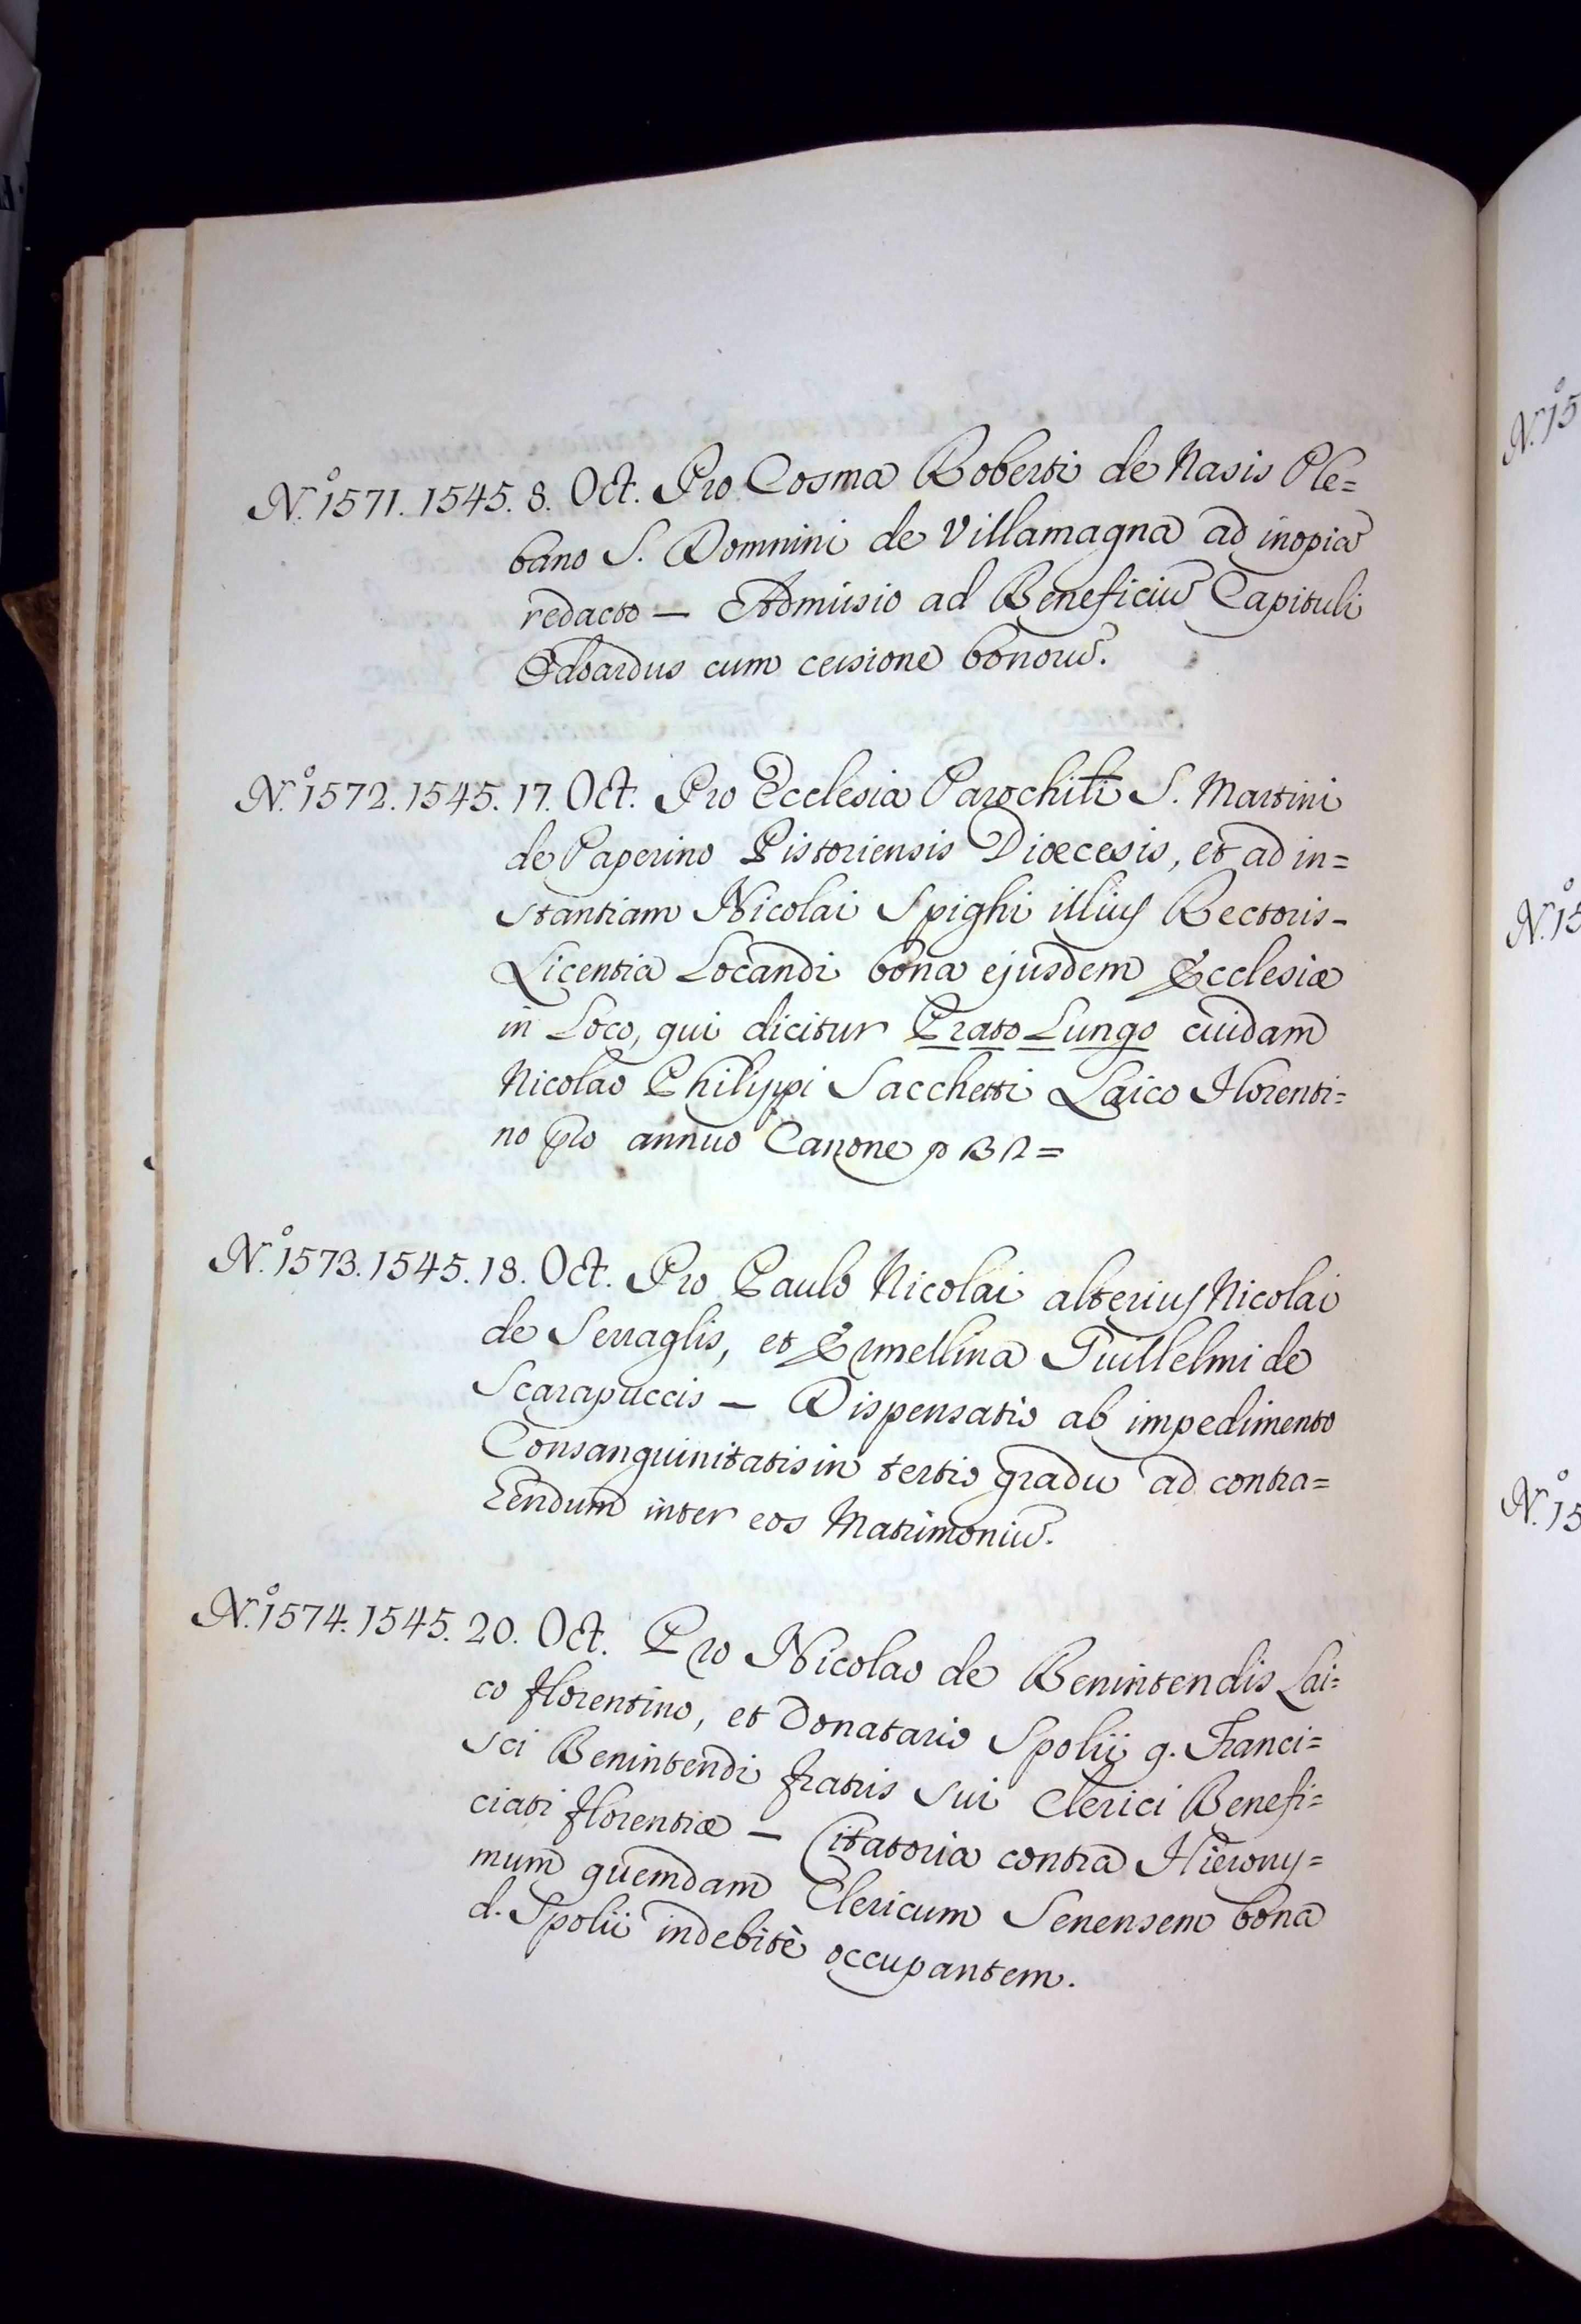 N.º 1571. 1545. 8. Oct. Pro Cosma Roberti de Nasis Ple=
bano S. Domnini de Villamagna ad inopiã
redacto — Admissio ad Beneficiũ Capituli
Odoardus cum cessione bonorũ.
N.º 1572. 1545. 17. Oct. Pro Ecclesia Parochiłi S. Martini
de Paperino Pistoriensis Diœcesis, et ad in=
stantiam Nicolai Spighi illius Rectoris -
Licentia Locandi bona ejusdem Ecclesiæ
in Loco, qui dicitur Prato Lungo cuidam
Nicolao Philippi Sacchetti Laico Florenti=
no pro annuo Canone
N.º 1573. 1545. 18. Oct. Pro Paulo Nicolai alterius Nicolai
de Serraglis, et Ermellina Guillelmi de
Scarapuccis — Dispensatio ab impedimento
Consanguinitatis in tertio gradu ad contra=
Eendum inter eos Matrimoniũ.
N.º 1574. 1545. 20. Oct. Pro Nicolao de Benintendis Lai=
co Florentino, et Donatario Spolii q. Franci=
sci Benintendi fratris sui Clerici Benefi=
ciati Florentiæ — Citatoria contra Hierony=
mum quemdam Clericum Senensem bona
d. Spolii indebitè occupantem.
N.º 15
N.º 15
N.º 15